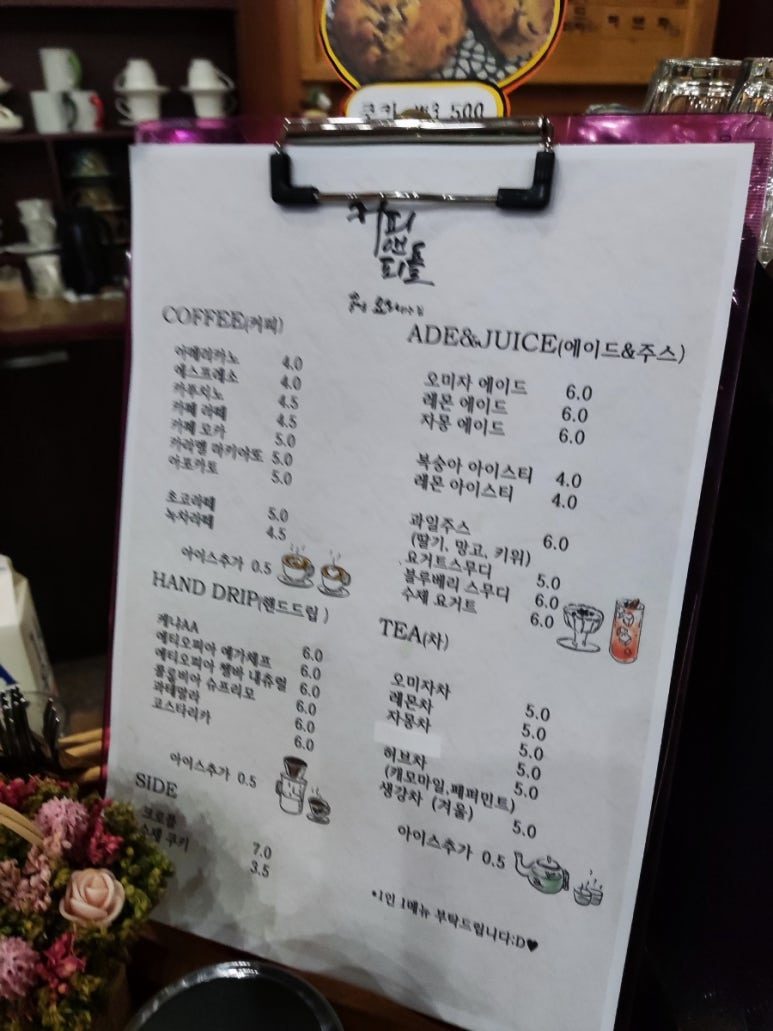 쿠키 ₩3,500
커피
앤
피플
COFFEE(커피)
아메리카노 4.0
에스프레소 4.0
카푸치노 4.5
카페 라떼 4.5
카페 모카 5.0
카라멜 마키아또 5.0
아포카토 5.0
초코라떼 5.0
녹차라떼 4.5
아이스추가 0.5
HAND DRIP(핸드드립)
케냐AA 6.0
에티오피아 예가체프 6.0
에티오피아 벰바 내츄럴 6.0
콜롬비아 슈프리모 6.0
과테말라 6.0
코스타리카 6.0
아이스추가 0.5
SIDE
크로플 7.0
수제 쿠키 3.5
ADE&JUICE(에이드&주스)
오미자 에이드 6.0
레몬 에이드 6.0
자몽 에이드 6.0
복숭아 아이스티 4.0
레몬 아이스티 4.0
과일주스 6.0
(딸기, 망고, 키위)
요거트스무디 5.0
블루베리 스무디 6.0
수제 요거트 6.0
TEA(차)
오미자차 5.0
레몬차 5.0
자몽차 5.0
5.0
허브차 5.0
(캐모마일,페퍼민트)
생강차 (겨울) 5.0
아이스추가 0.5
*1인 1메뉴 부탁드립니다:D♥